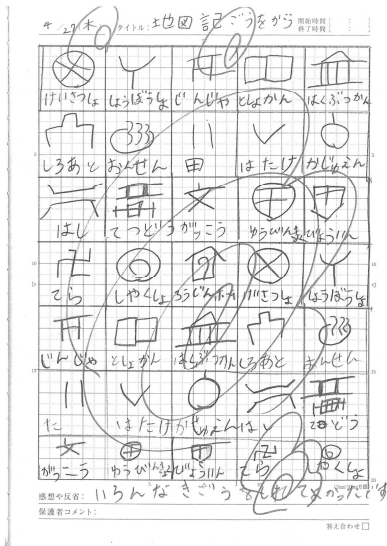 4 27 木 タイトル: 地図記ごうをから 開始時間 終了時間
けいさつしょ しょうぼうしょ じんじゃ としょかん はくぶつかん
しろあと おんせん 田 はたけ かじゅえん
はし てつどう がっこう ゆうびん びょういん
てら しやくしょ ろうじんホーム けいさつしょ しょうぼうしょ
じんじゃ としょかん はくぶつかん しろあと おんせん
た はたけ かじゅえん はし てつどう
がっこう ゆうびん びょういん てら しやくしょ
感想や反省: いろんなきごう てよかったです
保護者コメント:
答え合わせ